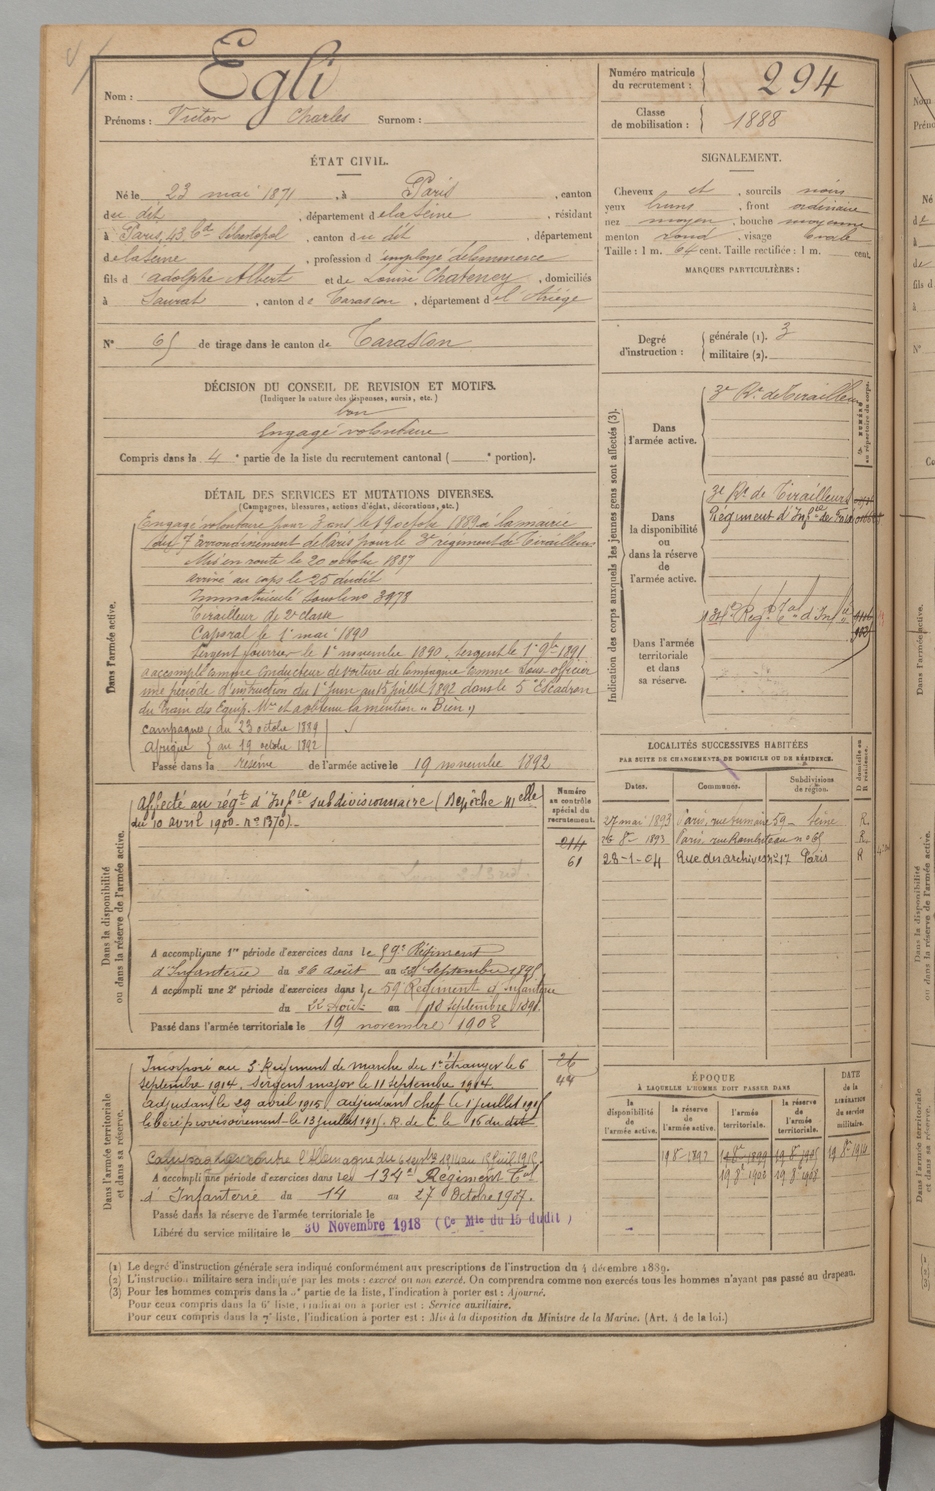 Nom : Egli
Prénoms : Victor Charles Surnom :
ÉTAT CIVIL.
Né le 23 mai 1871, à Paris, canton
du dit, département de la Seine, résidant
à Paris, 43, Bd Sébastopol, canton du dit, département
de la Seine, profession d'employé de commerce
fils d'Adolphe Albert et de Louise Chateney, domiciliés
à Saurat, canton de Tarascon, département de l'Ariège
N° 65 de tirage dans le canton de Tarascon
DÉCISION DU CONSEIL DE REVISION ET MOTIFS.
(Indiquer la nature des dispenses, sursis, etc.)
bon
Engagé volontaire
Compris dans la 4e partie de la liste du recrutement cantonal ( e portion).
DÉTAIL DES SERVICES ET MUTATIONS DIVERSES.
(Campagnes, blessures, actions d'éclat, décorations, etc.)
Dans l'armée active.
Engagé volontaire pour 3 ans le 19 octobre 1889 à la mairie
du 7e arrondissement de Paris pour le 3e régiment de Tirailleurs
Mis en route le 20 octobre 1887
arrivé au corps le 25 dudit
Immatriculé sous le no 3978
Tirailleur de 2e classe
Caporal le 1er mai 1890
Sergent fourrier le 1er novembre 1890, Sergent le 1er 9bre 1891
a accompli comme Conducteur de voiture de Compagnie comme Sous officier
une période d'instruction du 1er Juin au 15 juillet 1892 dans le 5e Escadron
du Train des Equip. Mres et a obtenu la mention "Bien"
Campagnes { du 23 octobre 1889
Afrique { au 19 octobre 1892
Passé dans la réserve de l'armée active le 19 novembre 1892
Dans la disponibilité
ou dans la réserve de l'armée active.
Affecté au régt d'Infie subdivisionnaire (Dépêche Melle
du 10 avril 1900 - no 1370).
Numéro
au contrôle
spécial du
recrutement.
214
61
A accompli une 1re période d'exercices dans le 89e Régiment
d'Infanterie du 26 août au septembre 1895
A accompli une 2e période d'exercices dans le 59 Régiment d'Infanterie
du 22 août au 18 septembre 1898.
Passé dans l'armée territoriale le 19 novembre 1902
Dans l'armée territoriale
et dans sa réserve.
Incorporé au 3 Régiment de marche du 1er étranger le 6
septembre 1914. sergent major le 11 septembre 1914
adjudant le 29 avril 1915, adjudant chef le 1 juillet 1915
libéré provisoirement le 13 juillet 1915. R. de C. le 16 du dit
26
44
Campagne contre l'Allemagne du 6 sept 1914 au 13 juil. 1915
A accompli une période d'exercices dans le 134e Régiment Tal
d'Infanterie du 14 au 27 Octobre 1907.
Passé dans la réserve de l'armée territoriale le
Libéré du service militaire le 30 Novembre 1918 (Ce Mle du 15 dudit)
Numéro matricule
du recrutement : 294
Classe
de mobilisation : 1888
SIGNALEMENT.
Cheveux et, sourcils noirs
yeux bruns, front ordinaire
nez moyen, bouche moyenne
menton rond, visage ovale
Taille : 1 m. 64 cent. Taille rectifiée : 1 m. cent.
MARQUES PARTICULIÈRES :
Degré
d'instruction :
générale (1). 3
militaire (2).
Indication des corps auxquels les jeunes gens sont affectés (3).
NUMÉRO
au répertoire du corps.
Dans
l'armée active.
3e Rt de Tirailleurs
Dans
la disponibilité
ou
dans la réserve
de
l'armée active.
3e Rt de Tirailleurs
Régiment d'Infie de Foix
Dans l'armée
territoriale
et dans
sa réserve.
134e Régt Tal d'Infie
LOCALITÉS SUCCESSIVES HABITÉES
PAR SUITE DE CHANGEMENTS DE DOMICILE OU DE RÉSIDENCE.
Dates. Communes. Subdivisions de région. D domicile ou R résidence.
27 mai 1893 Paris, rue 59 Seine R.
26 8bre 1893 Paris, rue Rambuteau no 65 R.
28-1-04 Rue des archives no 17 Paris R
ÉPOQUE
À LAQUELLE L'HOMME DOIT PASSER DANS
DATE
de la
LIBÉRATION
du service
militaire.
la disponibilité de l'armée active. la réserve de l'armée active. l'armée territoriale. la réserve de l'armée territoriale.
19 8bre 1892 19 8bre 1899 19 8bre 1905 19 8bre 1914
19 8bre 1902 19 8bre 1908
(1) Le degré d'instruction générale sera indiqué conformément aux prescriptions de l'instruction du 4 décembre 1889.
(2) L'instruction militaire sera indiquée par les mots : exercé ou non exercé. On comprendra comme non exercés tous les hommes n'ayant pas passé au drapeau.
(3) Pour les hommes compris dans la 5e partie de la liste, l'indication à porter est : Ajourné.
Pour ceux compris dans la 6e liste, l'indication à porter est : Service auxiliaire.
Pour ceux compris dans la 7e liste, l'indication à porter est : Mis à la disposition du Ministre de la Marine. (Art. 4 de la loi.)